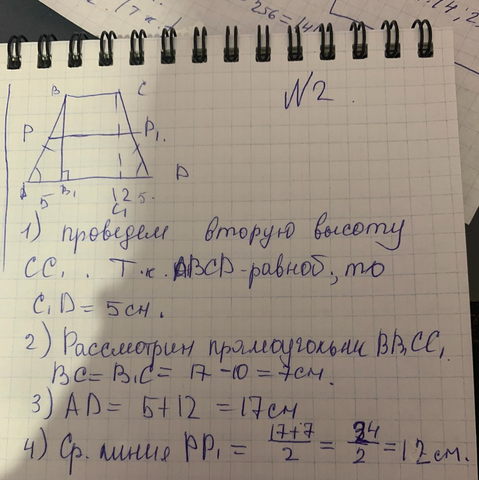 256=14
N2.
B C
P P₁.
A 5 B₁ 12 5. D
C₁
1) проведем вторую высоту
CC₁. Т.к. ABCD-равноб, то
C₁D = 5см.
2) Рассмотрим прямоугольник BB₁CC₁
BC = B₁C = 17 - 10 = 7см.
3) AD = 5+12 = 17см
4) Ср. линия PP₁ = 17+7/2 = 34/2 = 12 см.